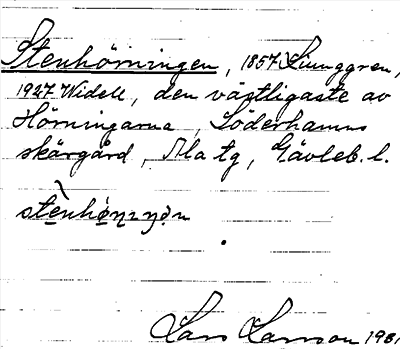 Stenhörningen, 1857 Ljunggren,
1927 Widell, den västligaste av
Hörningarna, Söderhamns
skärgård, Ala tg, Gävleb. l.
Lars Larsson 1981